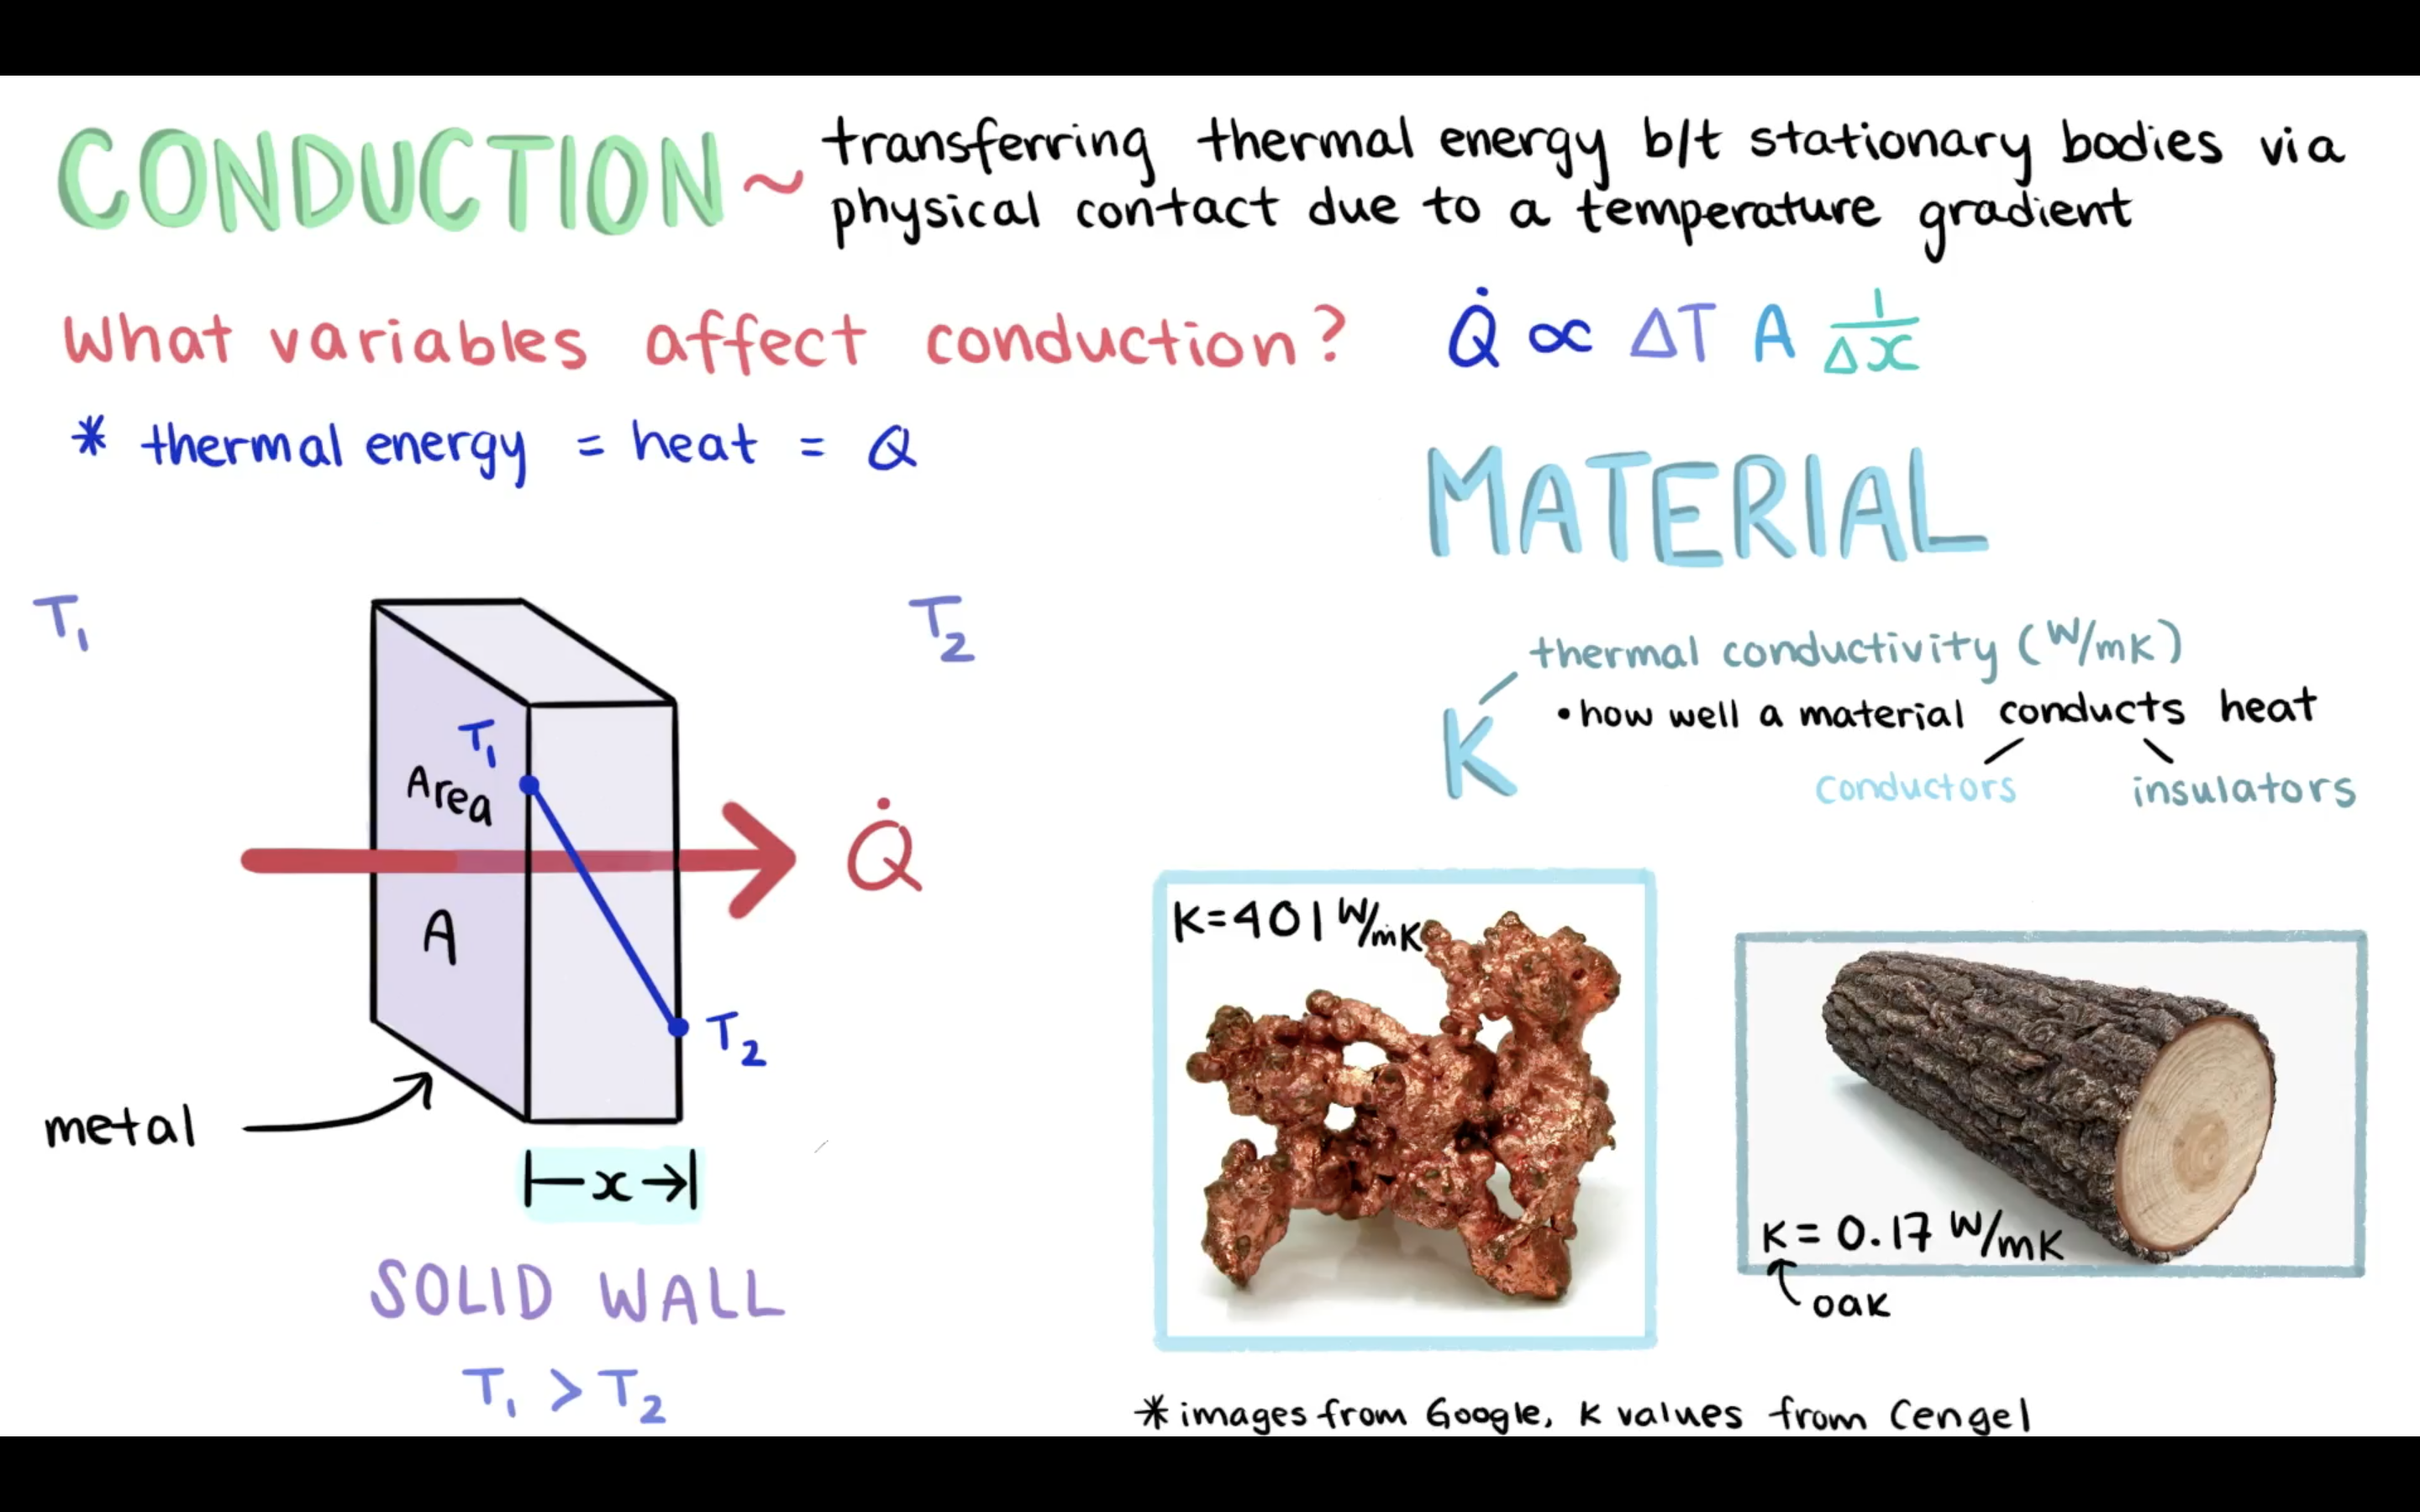 CONDUCTION ~ transferring thermal energy b/t stationary bodies via
physical contact due to a temperature gradient
What variables affect conduction? Q̇ ∝ ΔT A 1/Δx
* thermal energy = heat = Q
MATERIAL
T₁
T₂
thermal conductivity (W/mK)
K
• how well a material conducts heat
conductors insulators
T₁
Area
Q̇
A
T₂
metal
x
SOLID WALL
T₁ > T₂
K=401 W/mK
K = 0.17 W/mK
oak
* images from Google, K values from Cengel